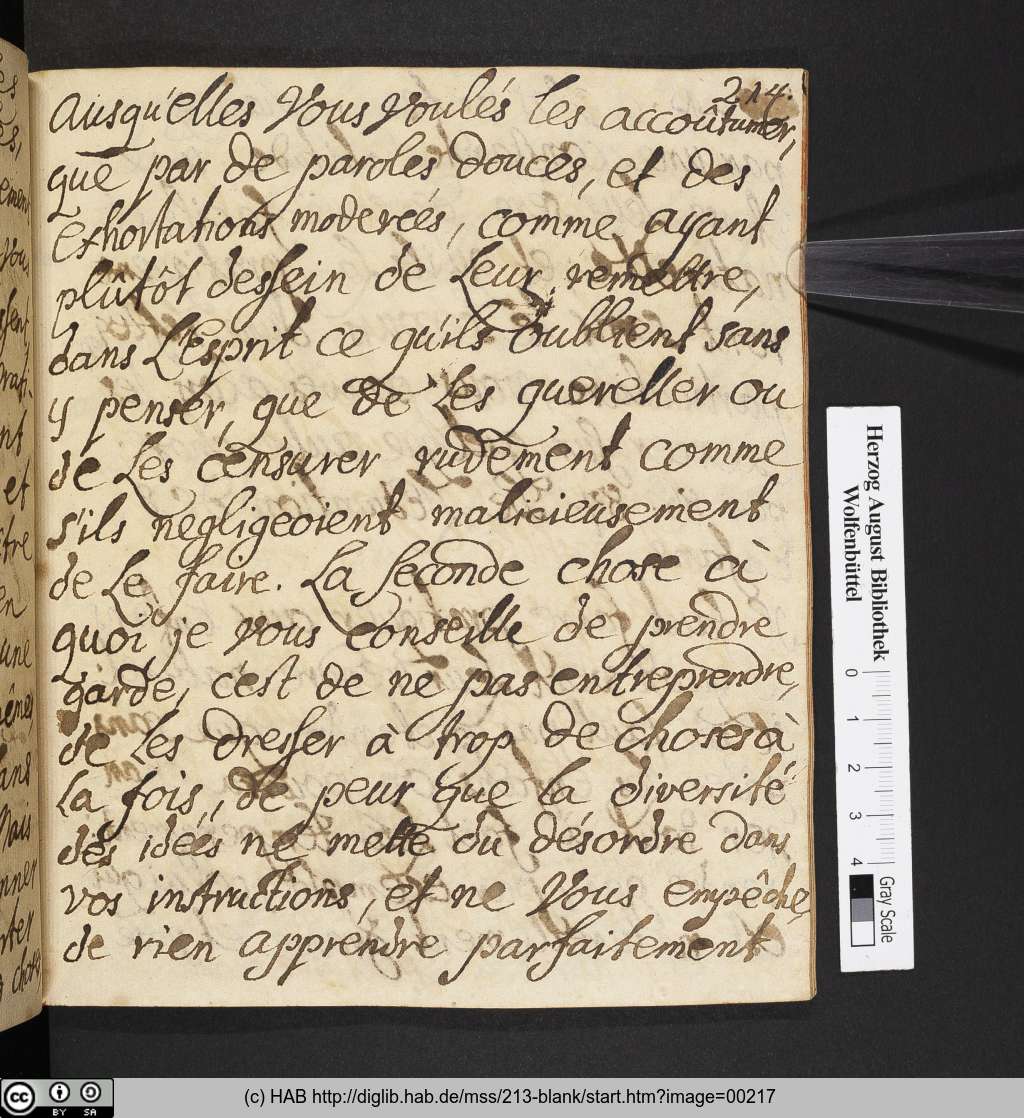 214.
Ausqu'elles Vous Voulés les accoûtumer,
que par de paroles douces, et des
Exhortations moderées, comme ayant
plûtôt dessein de Leur remettre,
dans L'Esprit ce qu'ils oublient sans
y penser, que de Les quereller ou
de Les censurer rudement comme
s'ils negligeoient malicieusement
de Le faire. La seconde chose à
quoi je vous conseille de prendre
garde, c'est de ne pas entreprendre,
de Les dresser à trop de choses à
La fois, de peur que la diversité
des idées ne mette du désordre dans
vos intructions, et ne Vous empêche,
de rien apprendre parfaitement
et
une
Herzog August Bibliothek
Wolfenbüttel
0 1 2 3 4
Gray Scale
cc BY SA
(c) HAB http://diglib.hab.de/mss/213-blank/start.htm?image=00217